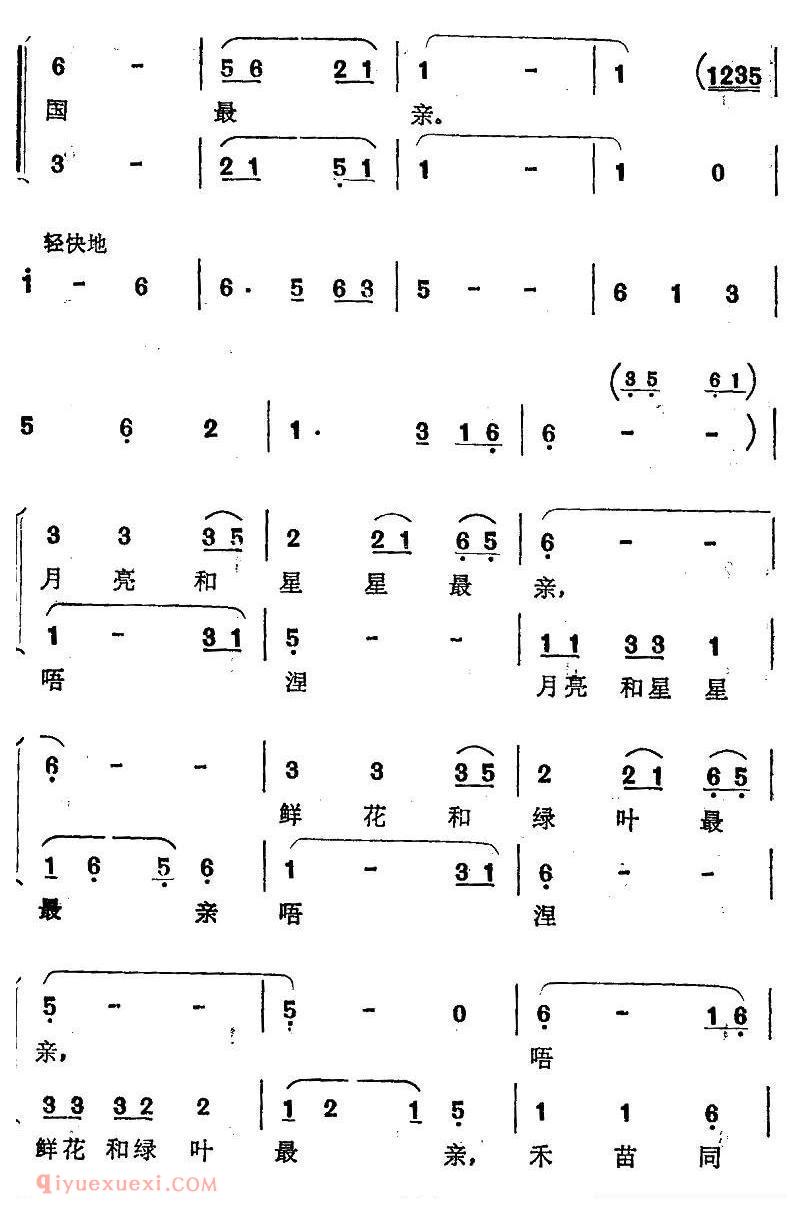 6 - | 5 6 2 1 | 1 - | 1 (1235 |
国 最 亲。
3 - | 2 1 5 1 | 1 - | 1 0 |
轻快地
1 - 6 | 6 · 5 6 3 | 5 - - | 6 1 3 |
(3 5 6 1)
5 6 2 | 1 · 3 1 6 | 6 - - ) |
3 3 3 5 | 2 2 1 6 5 | 6 - - |
月 亮 和 星 星 最 亲,
1 - 3 1 | 5 - - | 1 1 3 3 1 |
唔 涅 月亮 和星 星
6 - - | 3 3 3 5 | 2 2 1 6 5 |
鲜 花 和 绿 叶 最
1 6 5 6 | 1 - 3 1 | 6 - - |
最 亲 唔 涅
5 - - | 5 - 0 | 6 - 1 6 |
亲, 唔
3 3 3 2 2 | 1 2 1 5 | 1 1 6 |
鲜花 和绿 叶 最 亲, 禾 苗 同
qiyuexuexi.COM